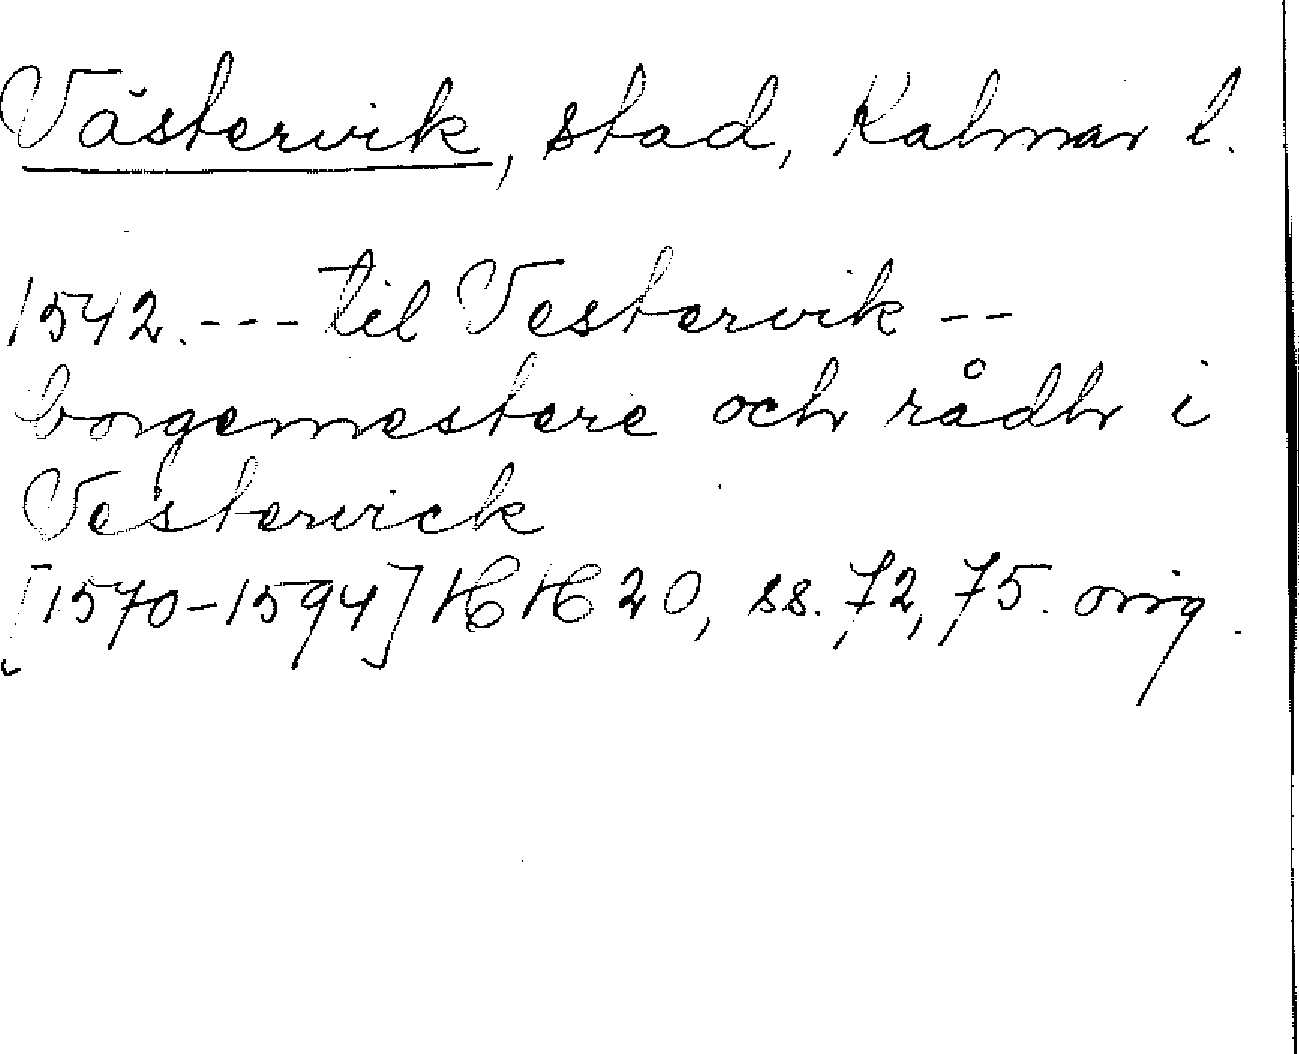 Västervik, stad, Kalmar l.
1542. --- til Vestervik --
borgemestere och rådh i
Vestervick
[1570-1594] HH 20, ss. 72, 75. orig.